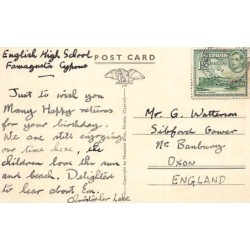 English High School
Famagusta Cyprus
POST CARD
Just to wish you
Many Happy returns
for your birthday.
We are still enjoying
our time here, the
children love the sun
and beach. Delighted
to hear about Em.
Christopher Lake
Mr. G. Watterson
Sibford Gower
Nr. Banbury
OXON
ENGLAND